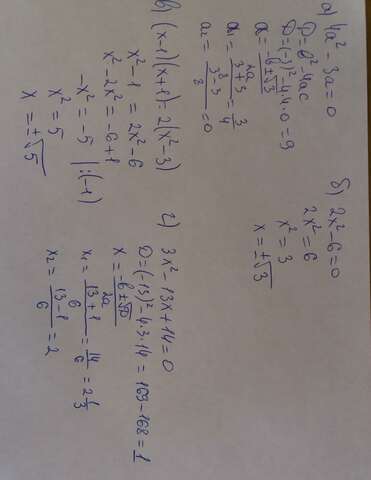 а) 4a² - 3a = 0
D = b² - 4ac
D = (-3)² - 4·4·0 = 9
a = (-b ± √D)/2a
a₁ = (3 + 3)/8 = 3/4
a₂ = (3 - 3)/8 = 0
б) 2x² - 6 = 0
2x² = 6
x² = 3
x = ±√3
в) (x-1)(x+1) = 2(x² - 3)
x² - 1 = 2x² - 6
x² - 2x² = -6 + 1
-x² = -5 | :(-1)
x² = 5
x = ±√5
г) 3x² - 13x + 14 = 0
D = (-13)² - 4·3·14 = 169 - 168 = 1
x = (-b ± √D)/2a
x₁ = (13 + 1)/6 = 14/6 = 2 1/3
x₂ = (13 - 1)/6 = 2